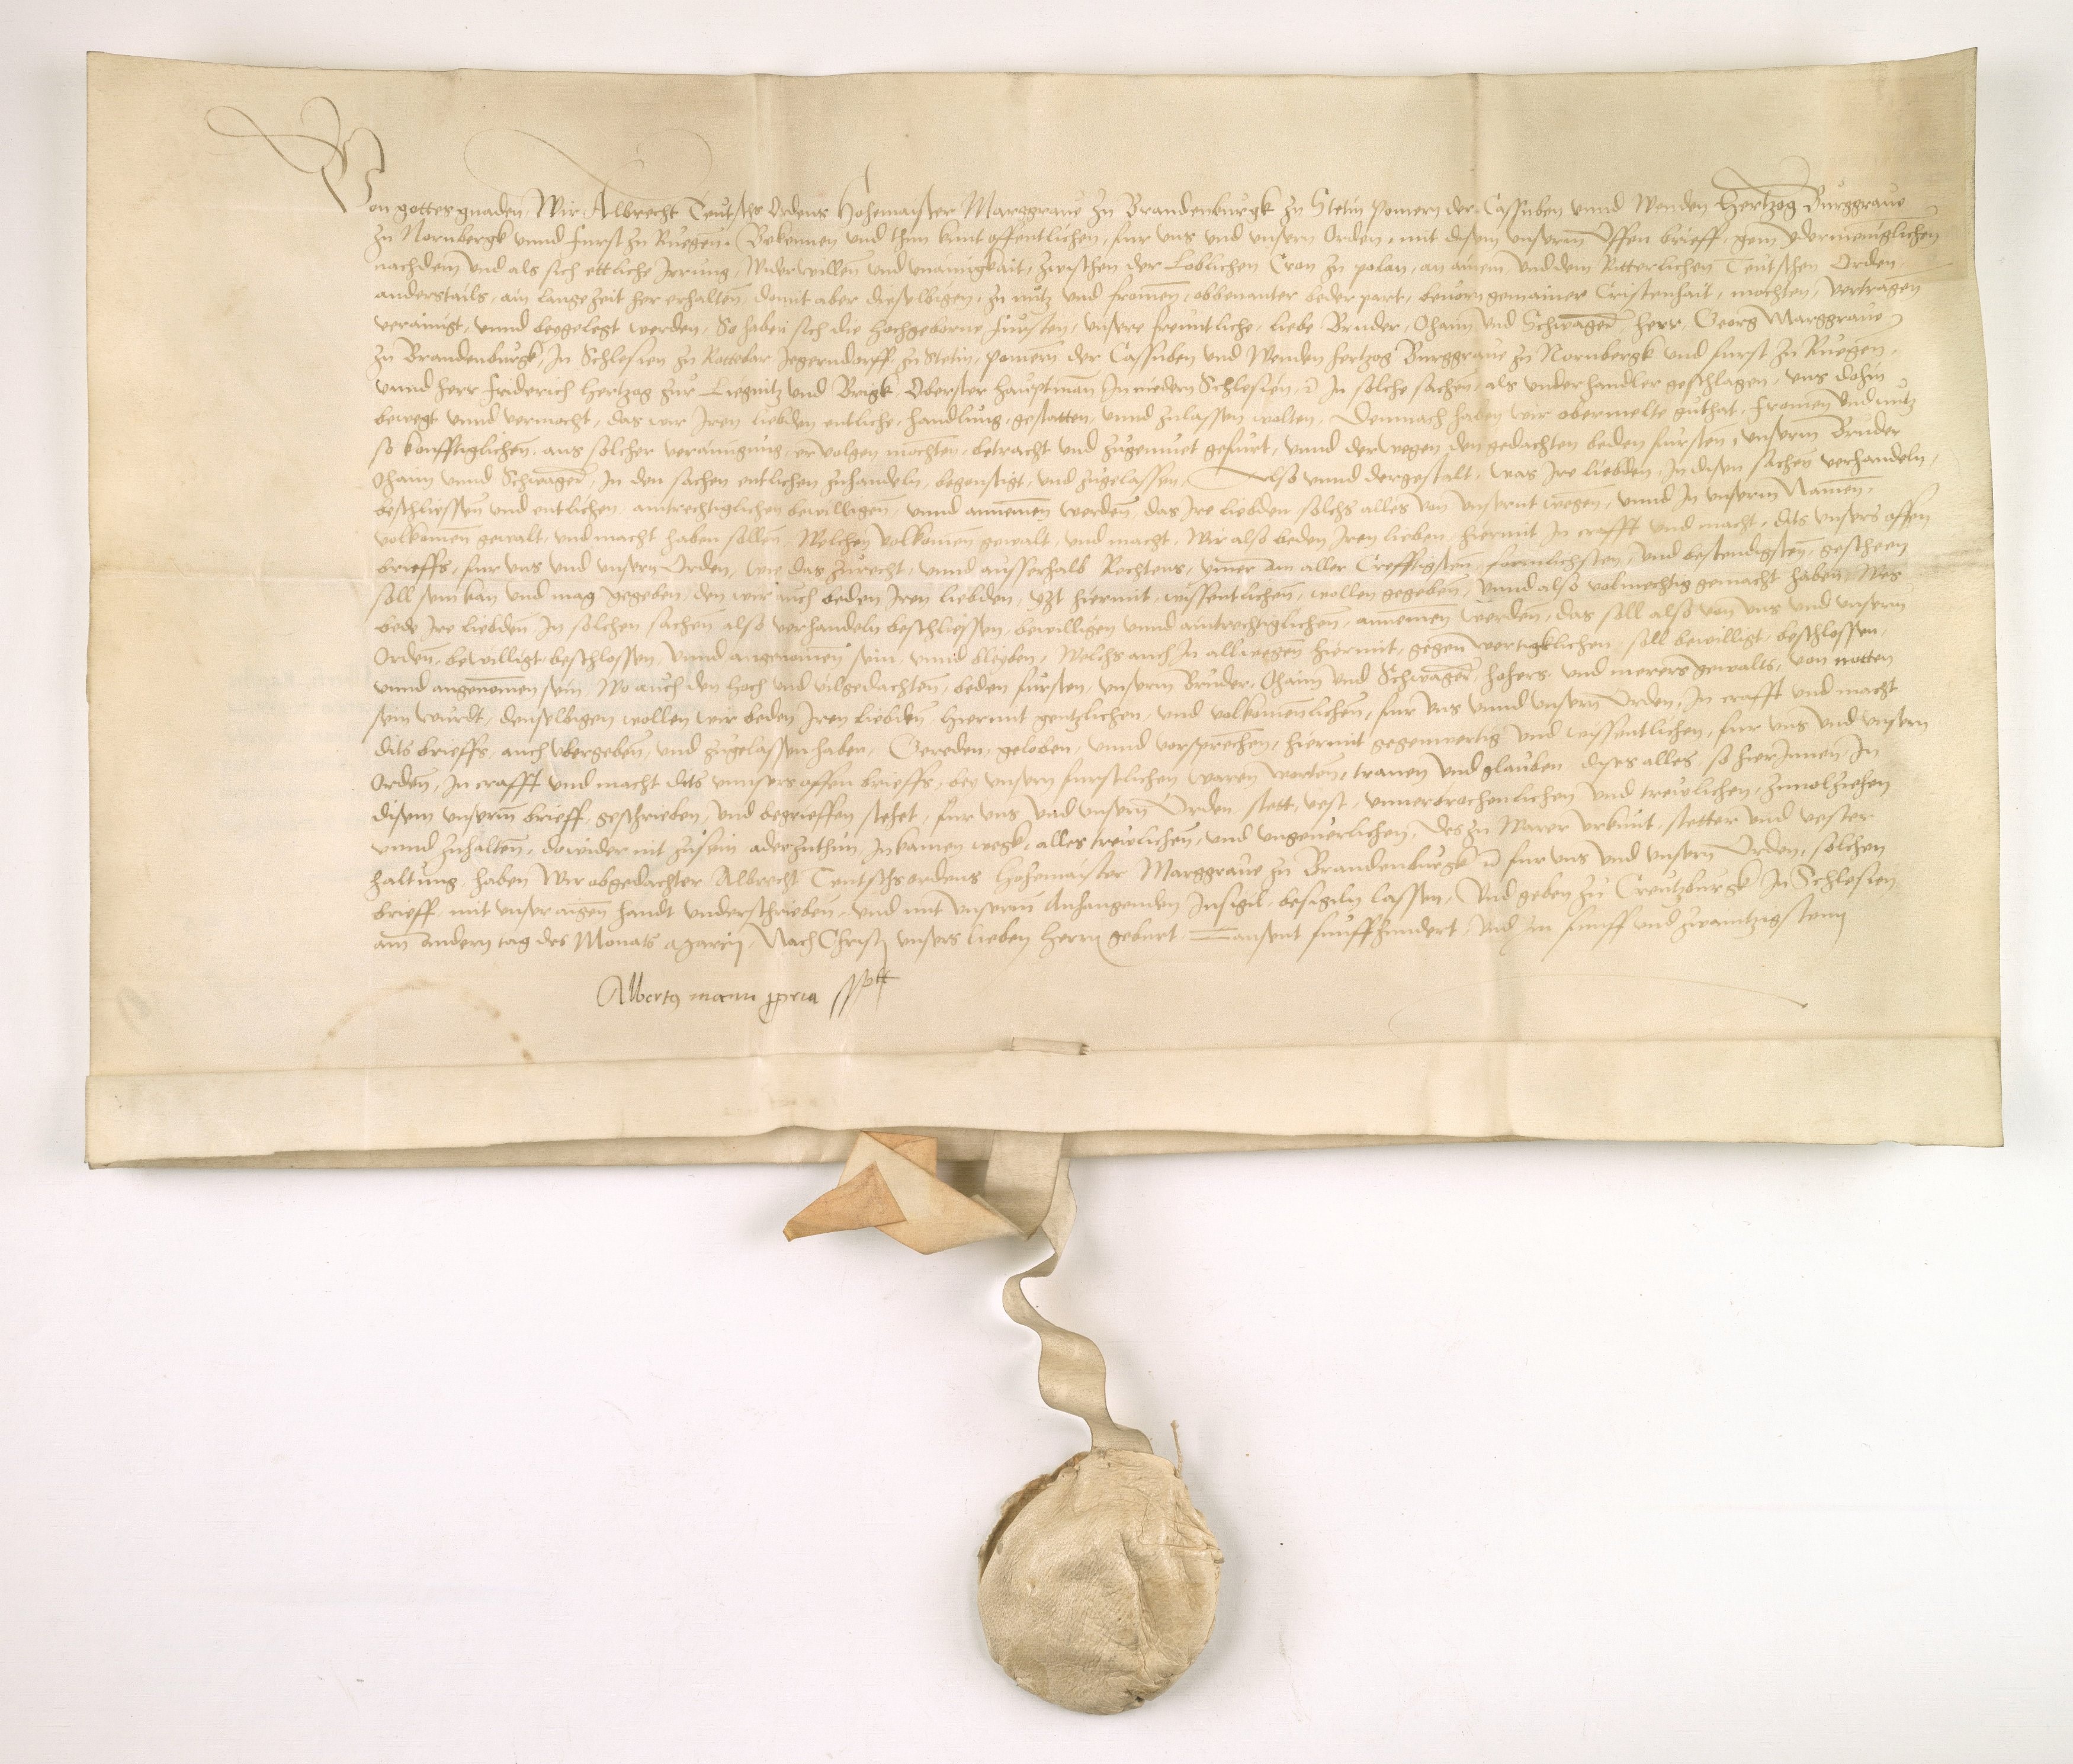 Von gottes gnaden Wir Albrecht Teutschs Ordens Hohemaister Marggraue zu Brandenburgk zu Stetin Pomern der Cassuben vnnd Wenden Hertzog Burggraue
zu Nornbergk vnnd Furst zu Ruegen. Bekennen vnd thun kunt offentlichen, fur vns vnd vnsern Orden, mit disem vnserm Offen brieff, gem ydermeniglichen
nachdem vnd als sich ettliche Irrung, Widerwillen vnd vneinigkait, zwischen der Loblichen Cron zu polan, an ainem vnd dem Ritterlichen Teutschen Orden,
anderstails, ain lange zeit her erhalten, domit aber dieselbigen, zu nutz vnd fromen, obbenanter beder part, beuorn gemainer Cristenhait, mochten, vertragen
verainigt, vnnd beygelegt werden, So haben sich die hochgeborne fursten, vnsere freuntliche, liebe Bruder, Ohaim vnd Schwager, herr, Georg Marggraue
zu Brandenburgk, In Schlesien zu Rottebar Jegerndorff, zu Stetin, pomern der Cassuben vnd Wenden hertzog Burggraue zu Nornbergk vnd furst zu Ruegen,
vnnd herr Friderich Hertzog zur Liegnitz vnd Brigk Oberster hauptman In nidern Schlesien, In solche sachen, als vnderhandler geschlagen, vns dohin
bewegt vnnd vermocht, das wir Iren liebden entliche, handlung, gestatten, vnnd zulassen wolten, Demnach haben wir obermelte guthat, fromen vnd nutz
so konfftiglichen, aus solcher verainigung, eruolgen mochten, betracht vnd zugemuet gefurt, vnnd derwegen den gedachten beden fursten, vnserm Bruder
Ohaim vnnd Schwager, In den sachen entlichen zuhandeln, begonstigt, vnd zugelassen, Also vnnd dergestalt, was Ire liebden, In disen sachen verhandeln,
beschliessen vnd entlichen, aintrechtiglichen bewilligen, vnnd annemen werden, das Ire liebden solchs alles von vnsernt wegen, vnnd In vnserm Namen,
volkomen gewalt, vnd macht haben sollen, Welchen volkomen gewalt, vnd macht, Wir also beden Iren lieben, hiermit In crafft vnd macht, dits vnsers offen
brieffs, fur vns vnd vnsern Orden, wie das zurecht, vnnd ausserhalb Rechtens, ymer am aller Crefftigsten, formlichsten, vnd bestendigsten, gescheen
soll sein kan vnd mag gegeben, den wir auch beden Iren liebden, yzt hiermit, wissentlichen, wollen gegeben, vnnd also volmechtig gemacht haben, Wes
bede Ire liebden In solchen sachen also verhandeln beschliessen, bewilligen vnnd aintrechtiglichen, annemen werden, das soll also von vns vnd vnserm
Orden, bewilligt, beschlossen, vnnd angenomen sein, vnnd bleyben, Welchs auch In allwegen hiermit, gegenwertigklichen, soll bewilligt, beschlossen,
vnnd angenomen sein, Wo auch den hoch vnd vilgedachten, beden fursten, vnserm Bruder, Ohaim vnd Schwager, hohers, vnd merers gewalts, von notten
sein wurdt, denselbigen wollen wir beden Iren liebden, hiermit gentzlichen, vnd volkomenlichen, fur vns vnnd vnsern Orden, In crafft vnd macht
dits brieffs, auch vbergeben, vnd zugelassen haben, Gereden, geloben, vnnd versprechen, hiermit gegenwertig vnd wissentlichen, fur vns vnd vnsern
Orden, In crafft vnd macht dits vnnsers offen brieffs, bey vnsern furstlichen waren worten, trauen vnd glauben dises alles, so hierInnen In
disem vnserm brieff, geschrieben, vnd begrieffen stehet, fur vns vnd vnsern Orden, stett, vest, vnuerbrochenlichen vnd treulichen, zuuolziehen
vnnd zuhalten, dowider nit zusein aderzuthun, In kainen wegk, alles treulichen, vnd vngeuerlichen, Des zu Warer vrkunt, stetter vnd vester
haltung, haben Wir obgedachter Albrecht Teutschs ordens Hohemaister Marggraue zu Brandenburgk fur vns vnd vnsern Orden, solchen
brieff, mit vnser aigen handt vnderschrieben, vnd mit vnserm Anhangenden Insigil, besigiln lassen, Vnd geben zu Creutzburgk In Schlesien
am andern tag des Monats Marcij, Nach Christj vnsers lieben herrn geburt, Tausent funffhundert, vnd Im funff vnd zwaintzigstenn
Albertus manu ppria sspt